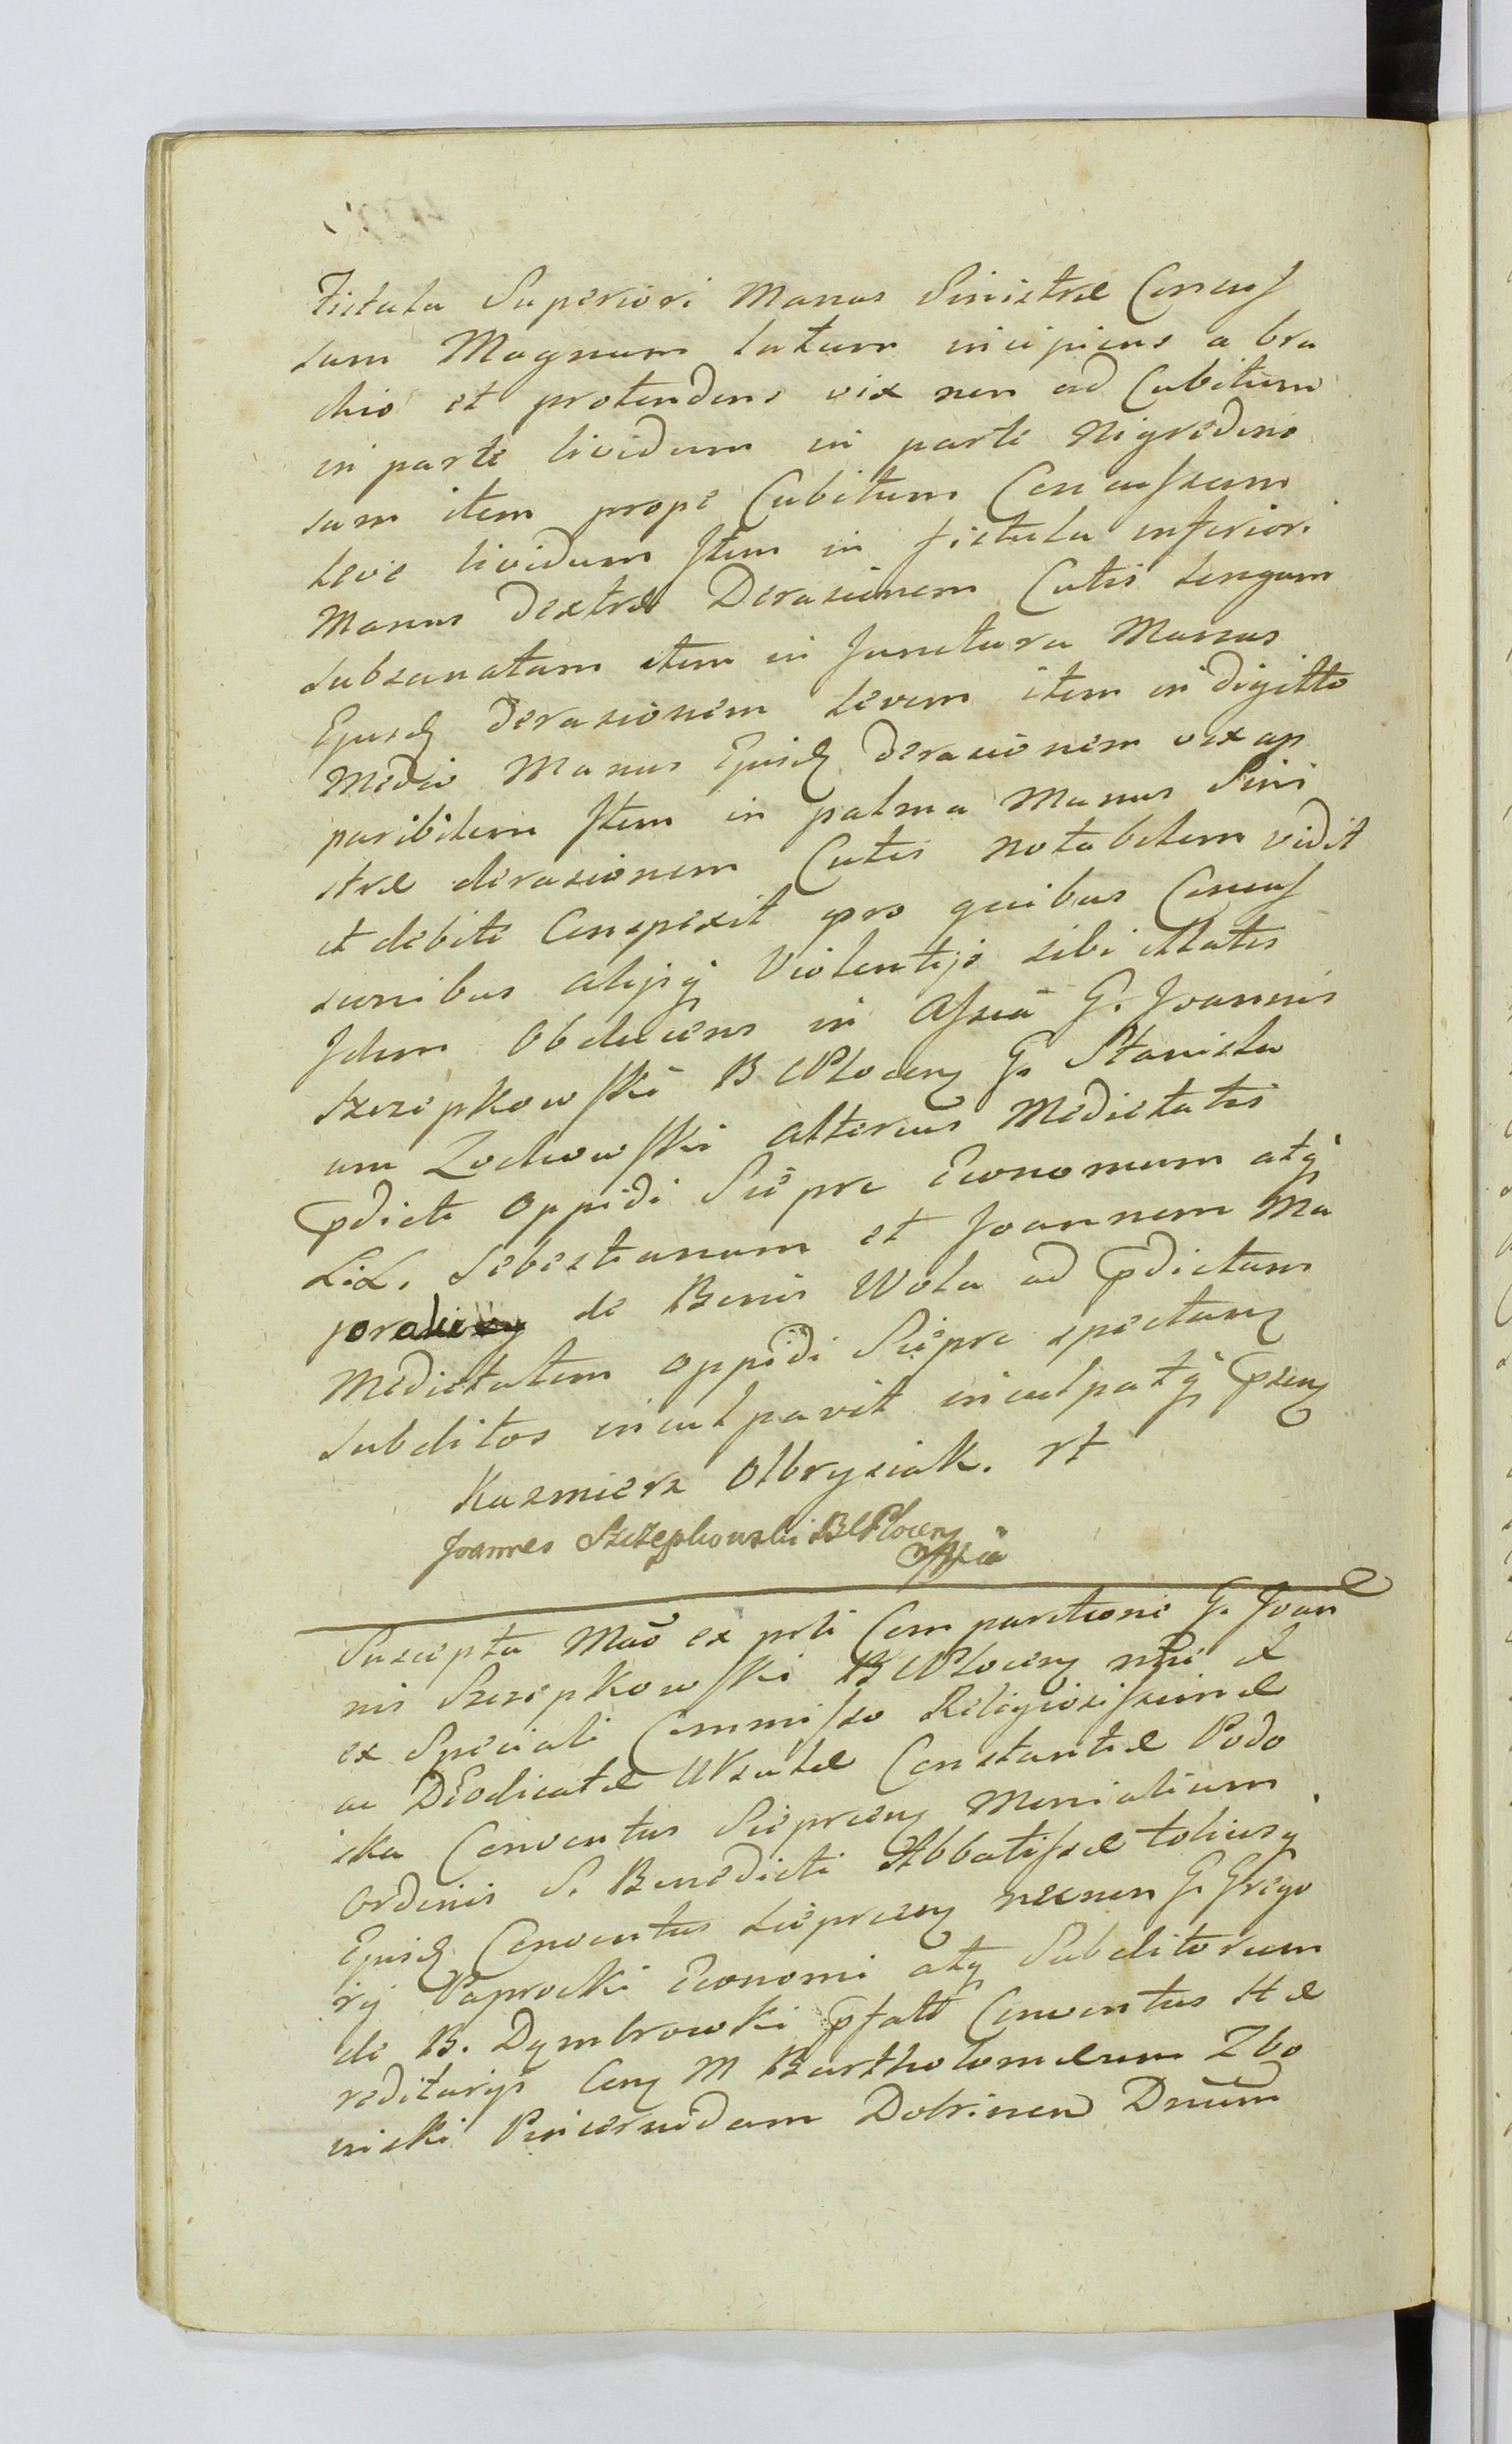 fistula Superiori Manus Sinistræ Concus
sum Magnum latum incipiens a bra
chio et protendens vix non ad Cubitum
in parte lividum in parte Nigredino
sum item prope Cubitum Concussum
Leve lividum Item in fistula inferiori
Manus dextræ Derasionem Cutis Longam
subsanatam item in Junctura Manus
Ejusd derasionem Levem item in digitto
Medio Manus Ejusd derasionem vix ap
paribilem Item in palma Manus Sini
stræ derasionem Cutis notabilem vidit
et debite Conspexit pro quibus Concus
sionibus alijsq Violentijs sibi illatis
Idem Obducens in Assia G. Joannis
Szczepkowski B C Plocen G. Stanisla
um Zochowski alterius Medietatis
pdicti Oppidi Sieprc Economum atq
L.L. Sebestianum et Joannem Ma
jorakievy de Bonis Wola ad pdictam
Medietatem Oppidi Sieprc spectan
subditos inculpavit inculpatq psen
Kazmierz Olbrysiak. rt
Joannes Szczepkowski B C Plocen
Assia
Suscepta Mao ex psti Comparitione G. Joan
nis Szczepkowski B C Plocen nsti &
ex Speciali Commisso Religiosissimæ
ac DEodicatæ Ursulæ Constantiæ Podo
ska Conventus Sieprcen Monialium
Ordinis S. Benedicti Abbatissæ totiusq
Ejusd Conventus Sieprcen necnon G. Grego
rij Paprocki Economi atq Subditorum
de B. Dymbrowki pfatt Conventus Hæ
reditarijs Con M Bartholomæum Zbo
inski Pincernidam Dobrinen Dnum